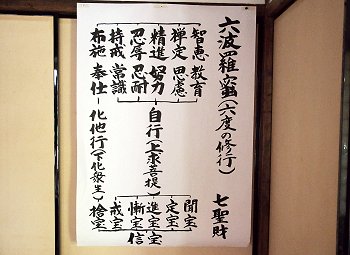 六波羅蜜(六度の修行)
七聖財
智恵 教育
禅定 思慮
精進 努力
忍辱 忍耐
持戒 常識
布施 奉仕
自行(上求菩提)
化他行(下化衆生)
聞宝
定宝
進宝
慚宝
信
戒宝
捨宝